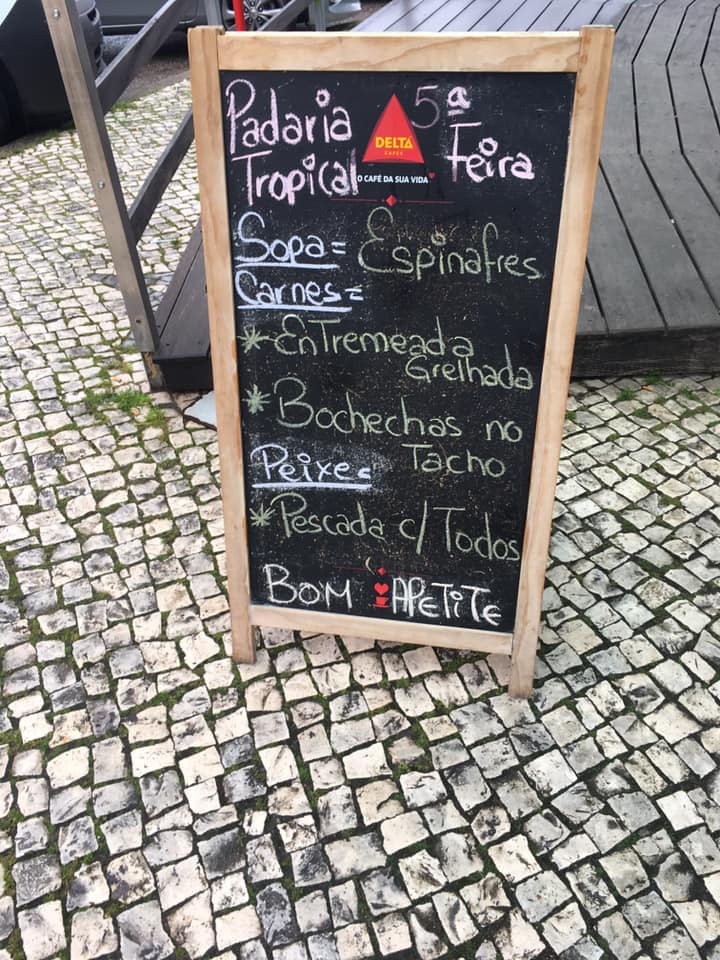 Padaria
Tropical
DELTA
CAFÉS
O CAFÉ DA SUA VIDA
5ª
Feira
Sopa= Espinafres
Carnes=
* EnTremeada
Grelhada
* Bochechas no
Tacho
Peixe=
* Pescada c/ Todos
BOM APETITE